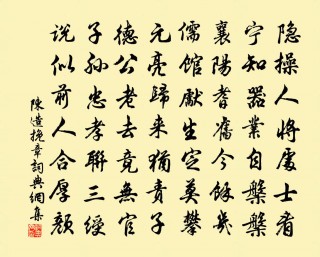 隐操人将處士看
宁知器業自槃槃
襄陽耆舊今餘幾
儒館獻生定莫攀
元亮歸来猶責子
德公老去竟無官
子孫忠孝聯三綬
说似前人合厚颜
陳造挽章詞典網集